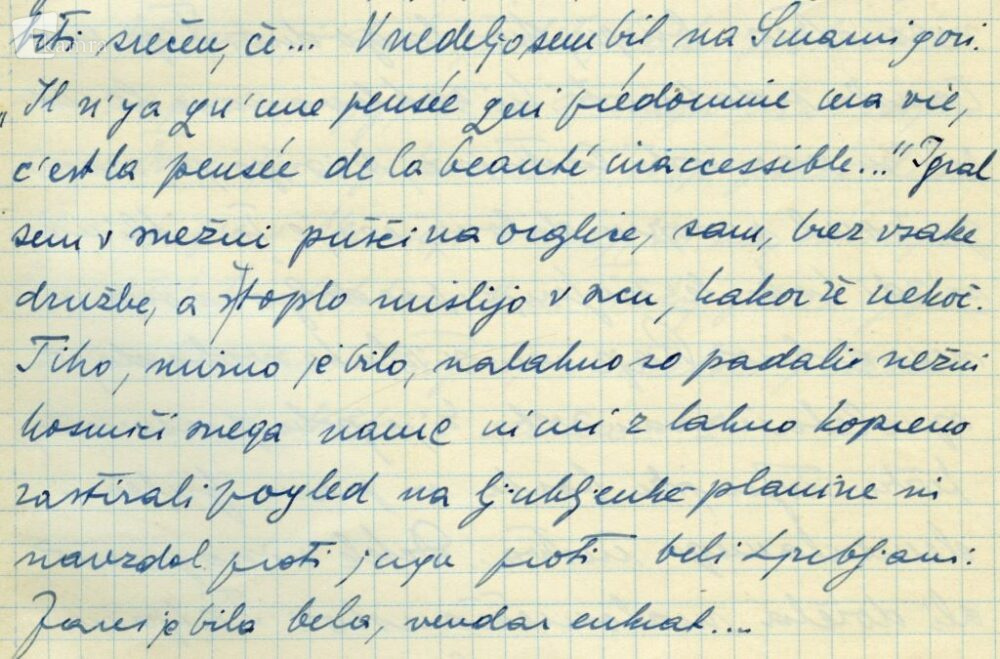 biti srečen, če... V nedeljo sem bil na Šmarni gori.
„Il n'y a qu'une pensée qui prédomine ma vie,
c'est la pensée de la beauté inaccessible..." Igral
sem v snežni pušči na orglice, sam, brez vsake
družbe, a s toplo mislijo v srcu, kakor že nekoč.
Tiho, mirno je bilo, nalahno so padali nežni
kosmiči snega name in mi z lahno kopreno
zastirali pogled na ljubljenke planine in
navzdol proti jugu proti beli Ljubljani:
Zares je bila bela, vendar enkrat....